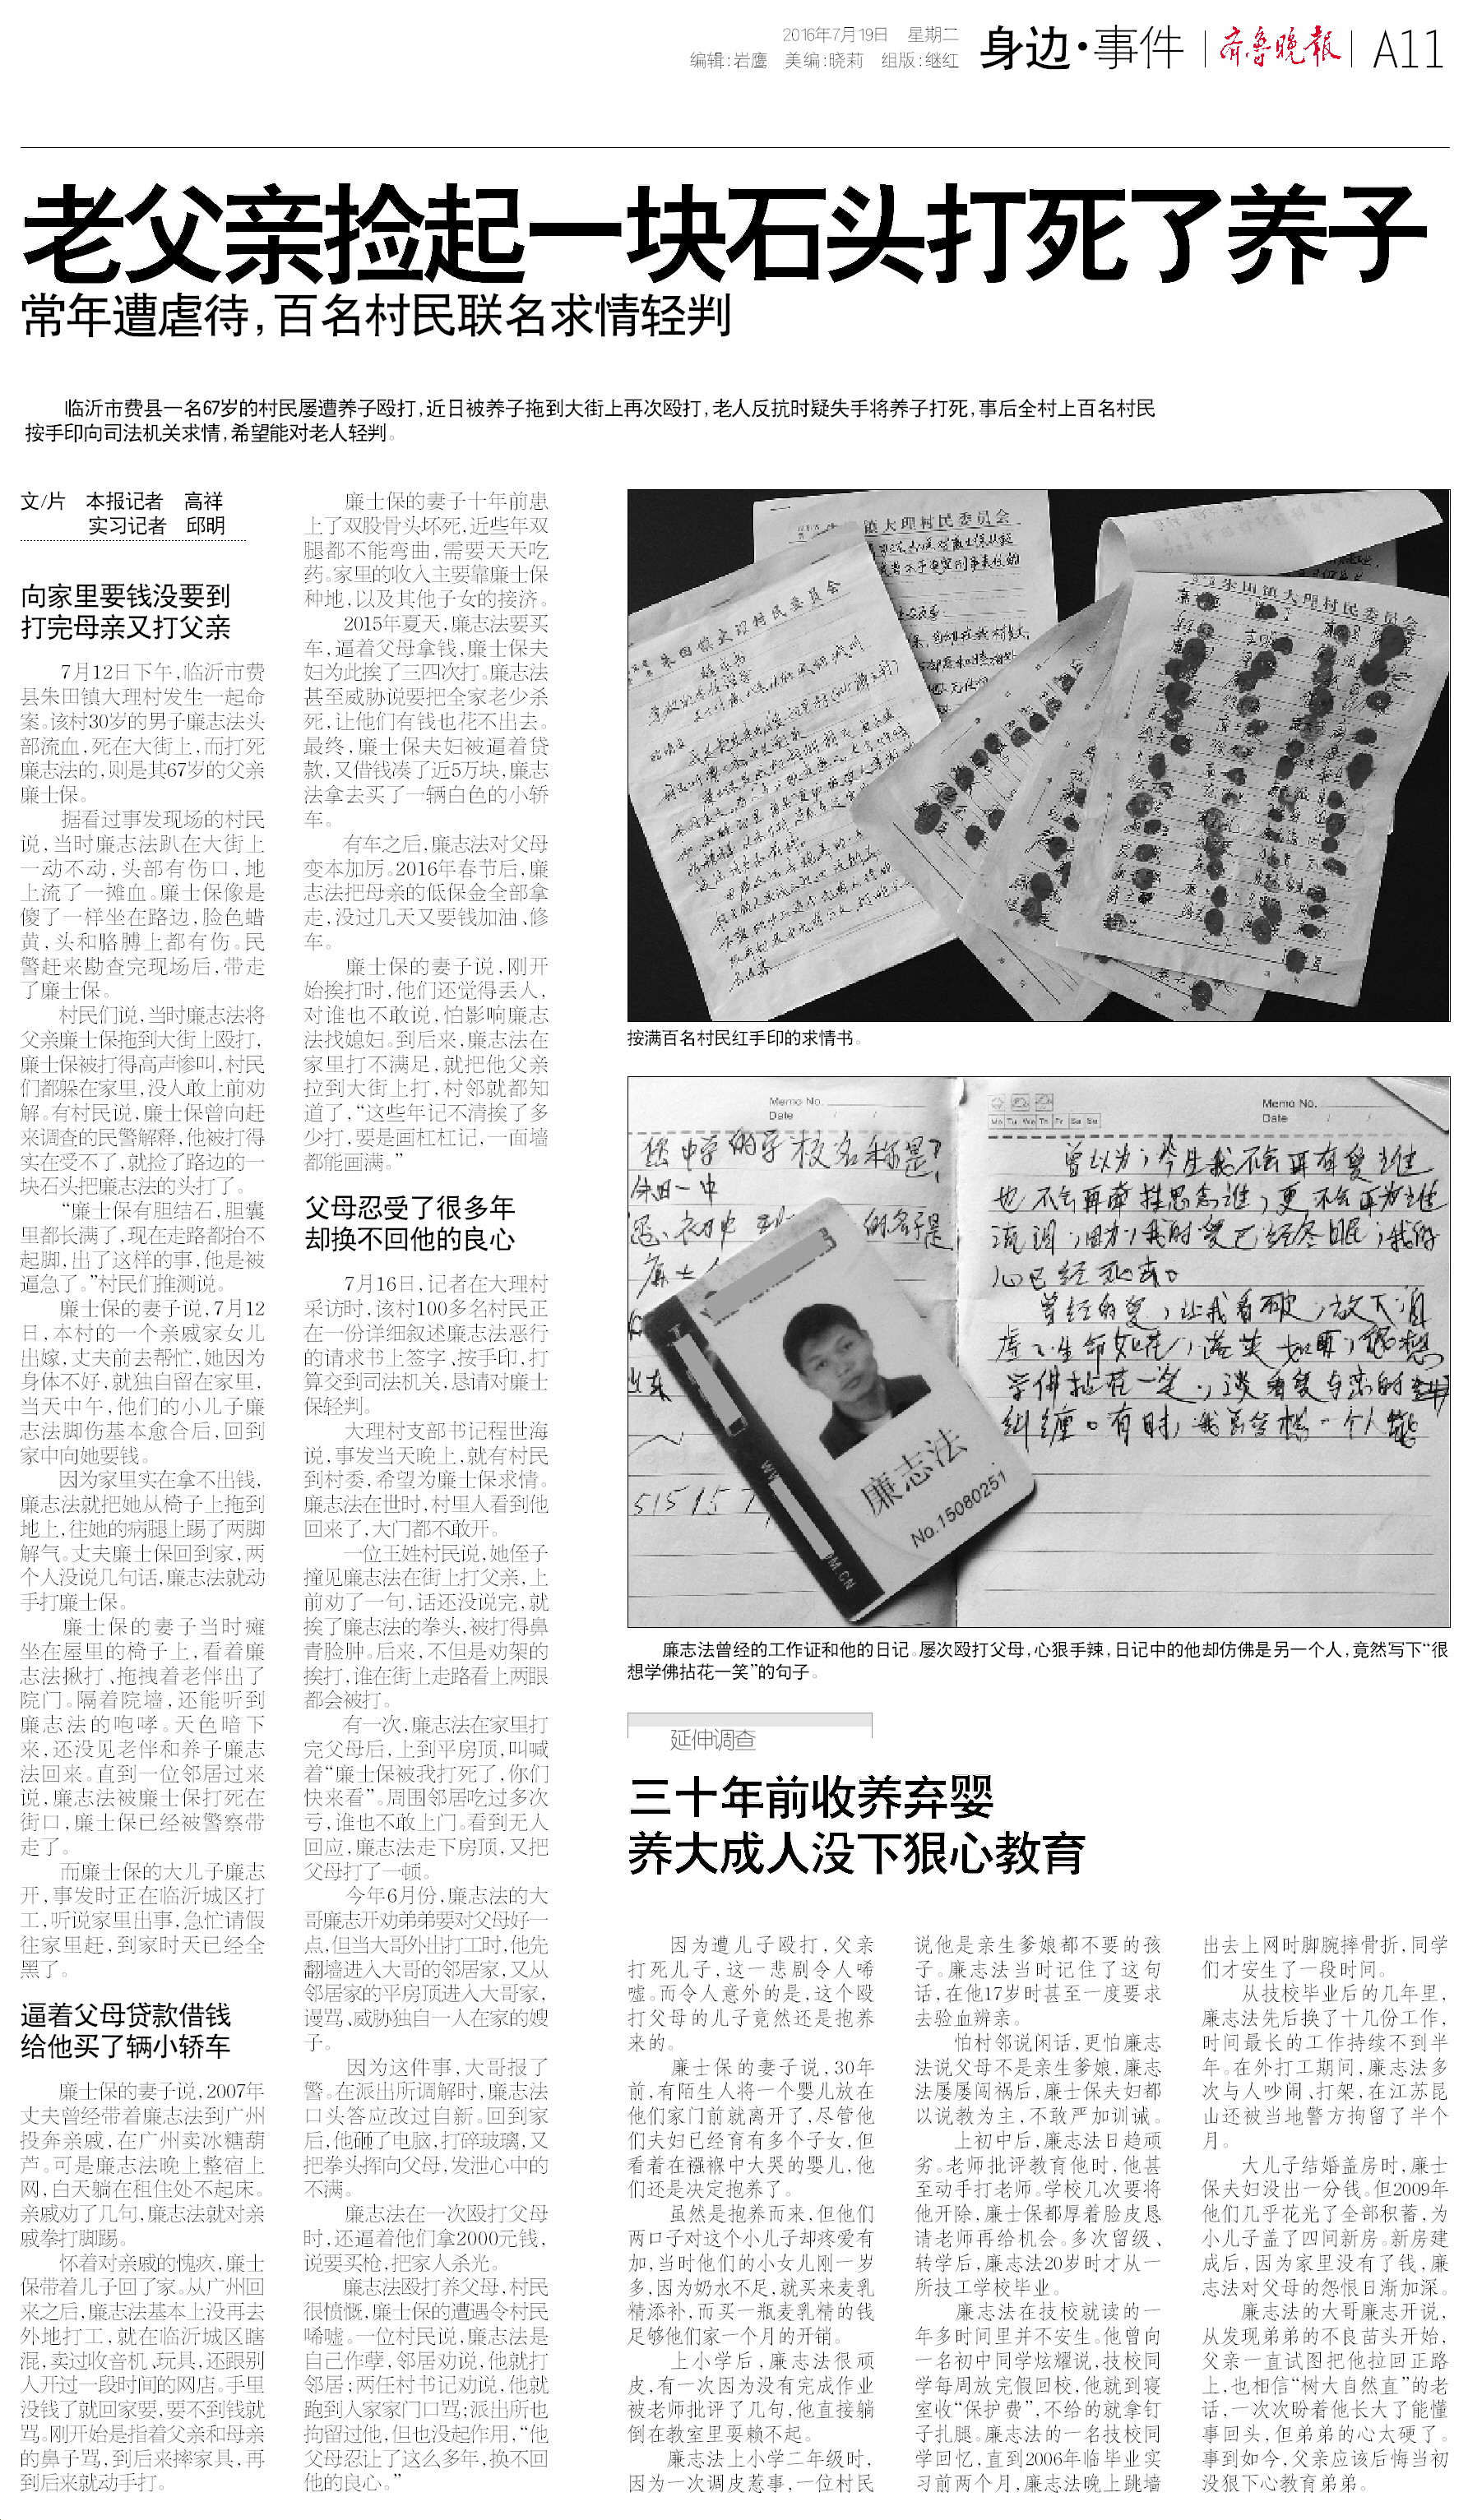 2016年7月19日　星期二
编辑:岩鹰　美编:晓莉　组版:继红
身边·事件
齐鲁晚报
A11
老父亲捡起一块石头打死了养子
常年遭虐待,百名村民联名求情轻判
临沂市费县一名67岁的村民屡遭养子殴打,近日被养子拖到大街上再次殴打,老人反抗时疑失手将养子打死,事后全村上百名村民
按手印向司法机关求情,希望能对老人轻判。
文/片　本报记者　高祥
实习记者　邱明
向家里要钱没要到
打完母亲又打父亲
7月12日下午,临沂市费
县朱田镇大理村发生一起命
案。该村30岁的男子廉志法头
部流血,死在大街上,而打死
廉志法的,则是其67岁的父亲
廉士保。
据看过事发现场的村民
说,当时廉志法趴在大街上
一动不动,头部有伤口,地
上流了一摊血。廉士保像是
傻了一样坐在路边,脸色蜡
黄,头和胳膊上都有伤。民
警赶来勘查完现场后,带走
了廉士保。
村民们说,当时廉志法将
父亲廉士保拖到大街上殴打,
廉士保被打得高声惨叫,村民
们都躲在家里,没人敢上前劝
解。有村民说,廉士保曾向赶
来调查的民警解释,他被打得
实在受不了,就捡了路边的一
块石头把廉志法的头打了。
“廉士保有胆结石,胆囊
里都长满了,现在走路都抬不
起脚,出了这样的事,他是被
逼急了。”村民们推测说。
廉士保的妻子说,7月12
日,本村的一个亲戚家女儿
出嫁,丈夫前去帮忙,她因为
身体不好,就独自留在家里,
当天中午,他们的小儿子廉
志法脚伤基本愈合后,回到
家中向她要钱。
因为家里实在拿不出钱,
廉志法就把她从椅子上拖到
地上,往她的病腿上踢了两脚
解气。丈夫廉士保回到家,两
个人没说几句话,廉志法就动
手打廉士保。
廉士保的妻子当时瘫
坐在屋里的椅子上,看着廉
志法揪打、拖拽着老伴出了
院门。隔着院墙,还能听到
廉志法的咆哮。天色暗下
来,还没见老伴和养子廉志
法回来。直到一位邻居过来
说,廉志法被廉士保打死在
街口,廉士保已经被警察带
走了。
而廉士保的大儿子廉志
开,事发时正在临沂城区打
工,听说家里出事,急忙请假
往家里赶,到家时天已经全
黑了。
逼着父母贷款借钱
给他买了辆小轿车
廉士保的妻子说,2007年
丈夫曾经带着廉志法到广州
投奔亲戚,在广州卖冰糖葫
芦。可是廉志法晚上整宿上
网,白天躺在租住处不起床。
亲戚劝了几句,廉志法就对亲
戚拳打脚踢。
怀着对亲戚的愧疚,廉士
保带着儿子回了家。从广州回
来之后,廉志法基本上没再去
外地打工,就在临沂城区瞎
混,卖过收音机、玩具,还跟别
人开过一段时间的网店。手里
没钱了就回家要,要不到钱就
骂。刚开始是指着父亲和母亲
的鼻子骂,到后来摔家具,再
到后来就动手打。
廉士保的妻子十年前患
上了双股骨头坏死,近些年双
腿都不能弯曲,需要天天吃
药。家里的收入主要靠廉士保
种地,以及其他子女的接济。
2015年夏天,廉志法要买
车,逼着父母拿钱,廉士保夫
妇为此挨了三四次打。廉志法
甚至威胁说要把全家老少杀
死,让他们有钱也花不出去。
最终,廉士保夫妇被逼着贷
款,又借钱凑了近5万块,廉志
法拿去买了一辆白色的小轿
车。
有车之后,廉志法对父母
变本加厉。2016年春节后,廉
志法把母亲的低保金全部拿
走,没过几天又要钱加油、修
车。
廉士保的妻子说,刚开
始挨打时,他们还觉得丢人,
对谁也不敢说,怕影响廉志
法找媳妇。到后来,廉志法在
家里打不满足,就把他父亲
拉到大街上打,村邻就都知
道了,“这些年记不清挨了多
少打,要是画杠杠记,一面墙
都能画满。”
父母忍受了很多年
却换不回他的良心
7月16日,记者在大理村
采访时,该村100多名村民正
在一份详细叙述廉志法恶行
的请求书上签字、按手印,打
算交到司法机关,恳请对廉士
保轻判。
大理村支部书记程世海
说,事发当天晚上,就有村民
到村委,希望为廉士保求情。
廉志法在世时,村里人看到他
回来了,大门都不敢开。
一位王姓村民说,她侄子
撞见廉志法在街上打父亲,上
前劝了一句,话还没说完,就
挨了廉志法的拳头,被打得鼻
青脸肿。后来,不但是劝架的
挨打,谁在街上走路看上两眼
都会被打。
有一次,廉志法在家里打
完父母后,上到平房顶,叫喊
着“廉士保被我打死了,你们
快来看”。周围邻居吃过多次
亏,谁也不敢上门。看到无人
回应,廉志法走下房顶,又把
父母打了一顿。
今年6月份,廉志法的大
哥廉志开劝弟弟要对父母好一
点,但当大哥外出打工时,他先
翻墙进入大哥的邻居家,又从
邻居家的平房顶进入大哥家,
谩骂、威胁独自一人在家的嫂
子。
因为这件事,大哥报了
警。在派出所调解时,廉志法
口头答应改过自新。回到家
后,他砸了电脑,打碎玻璃,又
把拳头挥向父母,发泄心中的
不满。
廉志法在一次殴打父母
时,还逼着他们拿2000元钱,
说要买枪,把家人杀光。
廉志法殴打养父母,村民
很愤慨,廉士保的遭遇令村民
唏嘘。一位村民说,廉志法是
自己作孽,邻居劝说,他就打
邻居;两任村书记劝说,他就
跑到人家家门口骂;派出所也
拘留过他,但也没起作用,“他
父母忍让了这么多年,换不回
他的良心。”
镇大理村民委员会
朱田镇大理村民委员会
朱田镇大理村民委员会
按满百名村民红手印的求情书。
Memo No.
Date
Memo No.
Date
Mo Tu We Th Fr Sa Su
您中学的学校名称是?
朱田一中
曾以为,今生我不会再有爱上谁
也不会再牵挂思念谁,更不会再为谁
流泪,因为,我的爱已经冬眠,我的
心已经死去。
廉志法
No.15080251
廉志法曾经的工作证和他的日记。屡次殴打父母,心狠手辣,日记中的他却仿佛是另一个人,竟然写下“很
想学佛拈花一笑”的句子。
延伸调查
三十年前收养弃婴
养大成人没下狠心教育
因为遭儿子殴打,父亲
打死儿子,这一悲剧令人唏
嘘。而令人意外的是,这个殴
打父母的儿子竟然还是抱养
来的。
廉士保的妻子说,30年
前,有陌生人将一个婴儿放在
他们家门前就离开了,尽管他
们夫妇已经育有多个子女,但
看着在襁褓中大哭的婴儿,他
们还是决定抱养了。
虽然是抱养而来,但他们
两口子对这个小儿子却疼爱有
加,当时他们的小女儿刚一岁
多,因为奶水不足,就买来麦乳
精添补,而买一瓶麦乳精的钱
足够他们家一个月的开销。
上小学后,廉志法很顽
皮,有一次因为没有完成作业
被老师批评了几句,他直接躺
倒在教室里耍赖不起。
廉志法上小学二年级时,
因为一次调皮惹事,一位村民
说他是亲生爹娘都不要的孩
子。廉志法当时记住了这句
话,在他17岁时甚至一度要求
去验血辨亲。
怕村邻说闲话,更怕廉志
法说父母不是亲生爹娘,廉志
法屡屡闯祸后,廉士保夫妇都
以说教为主,不敢严加训诫。
上初中后,廉志法日趋顽
劣。老师批评教育他时,他甚
至动手打老师。学校几次要将
他开除,廉士保都厚着脸皮恳
请老师再给机会。多次留级、
转学后,廉志法20岁时才从一
所技工学校毕业。
廉志法在技校就读的一
年多时间里并不安生。他曾向
一名初中同学炫耀说,技校同
学每周放完假回校,他就到寝
室收“保护费”,不给的就拿钉
子扎腿。廉志法的一名技校同
学回忆,直到2006年临毕业实
习前两个月,廉志法晚上跳墙
出去上网时脚腕摔骨折,同学
们才安生了一段时间。
从技校毕业后的几年里,
廉志法先后换了十几份工作,
时间最长的工作持续不到半
年。在外打工期间,廉志法多
次与人吵闹、打架,在江苏昆
山还被当地警方拘留了半个
月。
大儿子结婚盖房时,廉士
保夫妇没出一分钱。但2009年
他们几乎花光了全部积蓄,为
小儿子盖了四间新房。新房建
成后,因为家里没有了钱,廉
志法对父母的怨恨日渐加深。
廉志法的大哥廉志开说,
从发现弟弟的不良苗头开始,
父亲一直试图把他拉回正路
上,也相信“树大自然直”的老
话,一次次盼着他长大了能懂
事回头,但弟弟的心太硬了。
事到如今,父亲应该后悔当初
没狠下心教育弟弟。